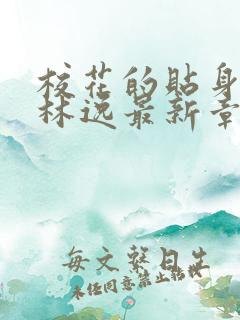 校花的贴身
林逸最新章
每文整日生
未经同意禁止转载